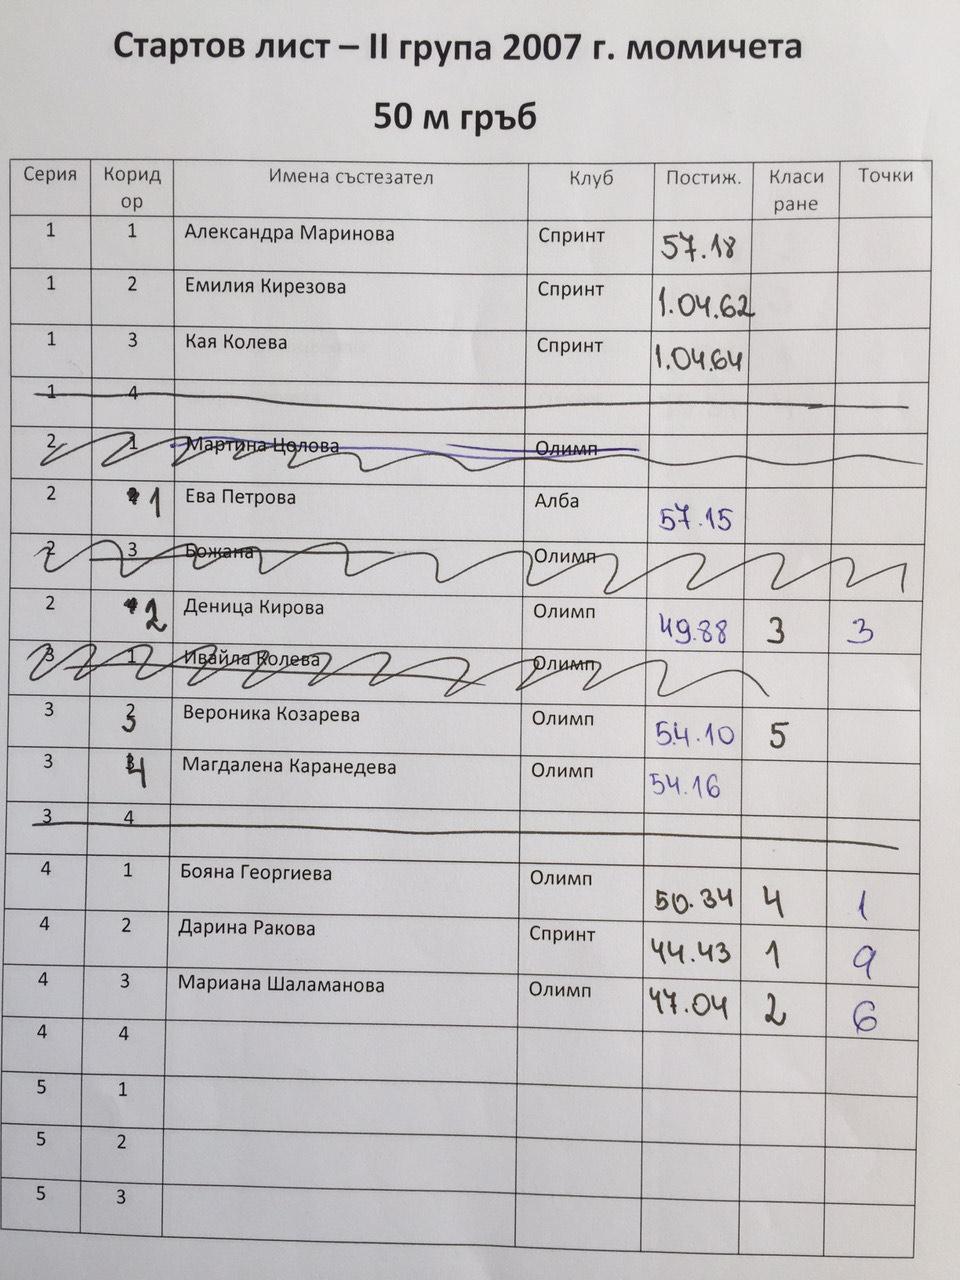 Стартов лист – II група 2007 г. момичета
50 м гръб
Серия Коридор Имена състезател Клуб Постиж. Класиране Точки
1 1 Александра Маринова Спринт 57.18
1 2 Емилия Кирезова Спринт 1.04.62
1 3 Кая Колева Спринт 1.04.64
1 4
2 1 Мартина Цолова Олимп
2 1 Ева Петрова Алба 57.15
2 3 Божана Олимп
2 2 Деница Кирова Олимп 49.88 3 3
3 1 Ивайла Колева Олимп
3 3 Вероника Козарева Олимп 54.10 5
3 4 Магдалена Каранедева Олимп 54.16
3 4
4 1 Бояна Георгиева Олимп 50.34 4 1
4 2 Дарина Ракова Спринт 44.43 1 9
4 3 Мариана Шаламанова Олимп 47.04 2 6
4 4
5 1
5 2
5 3